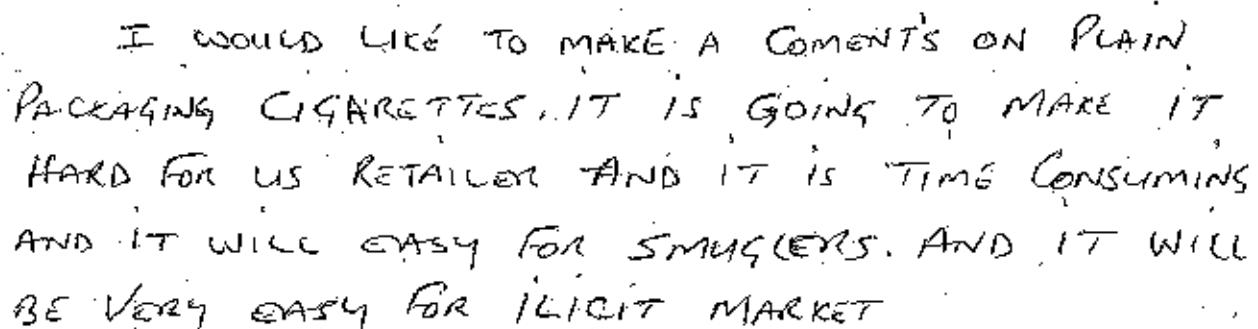 I WOULD LIKE TO MAKE A COMENT'S ON PLAIN
PACKAGING CIGARETTES. IT IS GOING TO MAKE IT
HARD FOR US RETAILER AND IT IS TIME CONSUMING
AND IT WILL EASY FOR SMUGLERS. AND IT WILL
BE VERY EASY FOR ILICIT MARKET